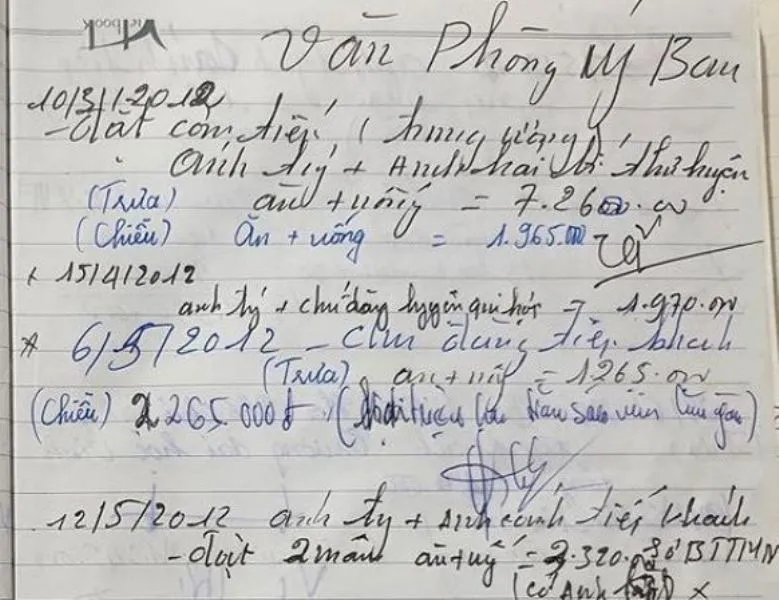 Văn Phòng Uỷ Ban
10/3/2012
- đặt cơm tiếp (trung ương)
anh tý + Anh hai bí thư huyện
(Trưa) ăn + uống = 7.260.000
(Chiều) Ăn + uống = 1.965.000
+ 15/4/2012
anh tý + chú dũng huyện = 1.970.000
* 6/5/2012 - Cơm dùng tiếp khách
(Trưa) ăn + uống = 1265.000
(Chiều) 2265.000đ
12/5/2012 anh ty + Anh cảnh tiếp khách
- đặt 2 mâm ăn + uống = 2.320. Sở BTTMN
(có Anh) x